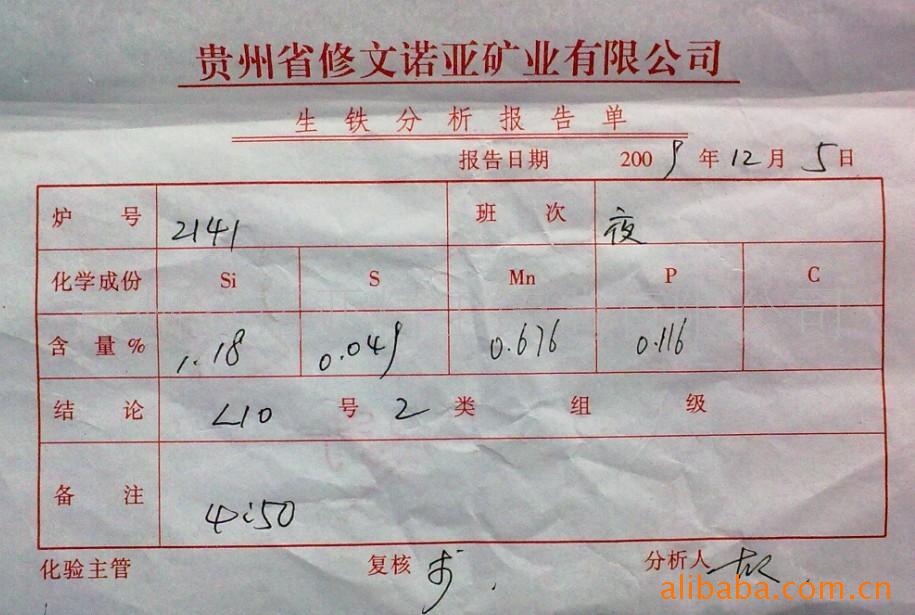 贵州省修文诺亚矿业有限公司
生铁分析报告单
报告日期 2009年12月5日
炉号 2141 班次 夜
化学成份 Si S Mn P C
含量% 1.18 0.049 0.676 0.116
结论 L10号 2类 组 级
备注 4:50
化验主管 复核 分析人
alibaba.com.cn